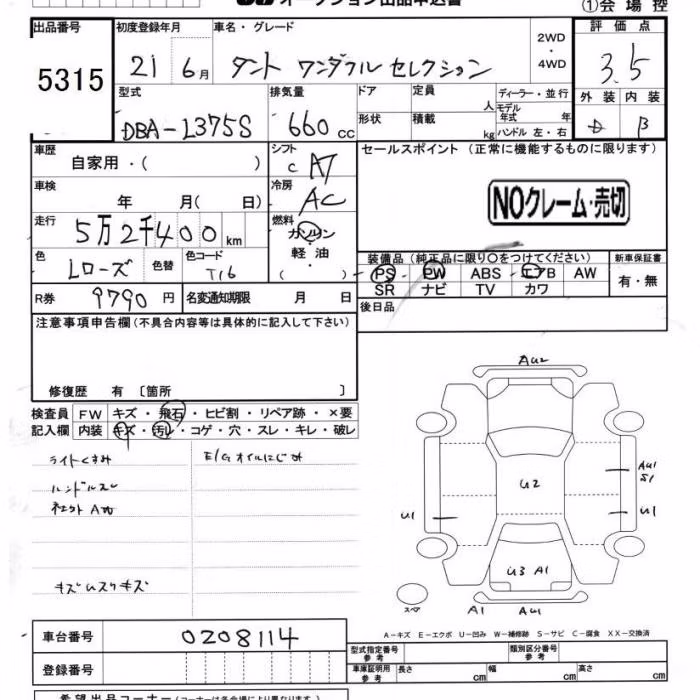 オークション出品申込書
①会場控
出品番号 5315
初度登録年月 21 6月
車名・グレード タント ワンダフルセレクション
2WD・4WD
評価点 3.5
外装 内装 B
型式 DBA-L375S
排気量 660 cc
ドア 形状
定員 人
積載 kg
ディーラー・並行
モデル年式 年
ハンドル 左・右
車歴 自家用・( )
シフト C AT
セールスポイント (正常に機能するものに限ります)
車検 年 月( 日)
冷房 AC
NOクレーム・売切
走行 5万2千400km
燃料 ガソリン 軽油・( )
色 Lローズ 色替
色コード T16
装備品(純正品に限り○をつけてください)
新車保証書
PS PW ABS エアB AW
有・無
SR ナビ TV カワ
R券 9790円
名変通知期限 月 日
後日品
注意事項申告欄(不具合内容等は具体的に記入して下さい)
修復歴 有 〔箇所 〕
検査員記入欄
FW キズ・飛石・ヒビ割・リペア跡・×要
内装 キズ・汚レ・コゲ・穴・スレ・キレ・破レ
ライトくすみ
E/Gオイルにじみ
ハンドルスレ
キズ
AU2
U2
AU1
S1
U1
U1
U3 A1
スペア
A1 AU1
A-キズ E-エクボ U-凹み W-補修跡 S-サビ C-腐食 XX-交換済
車台番号 0208114
登録番号
型式指定番号 参考
類別区分番号 参考
車庫証明用 参考
長さ cm
幅 cm
高さ cm
希望出品コーナー(コーナーは各会場により異なります)